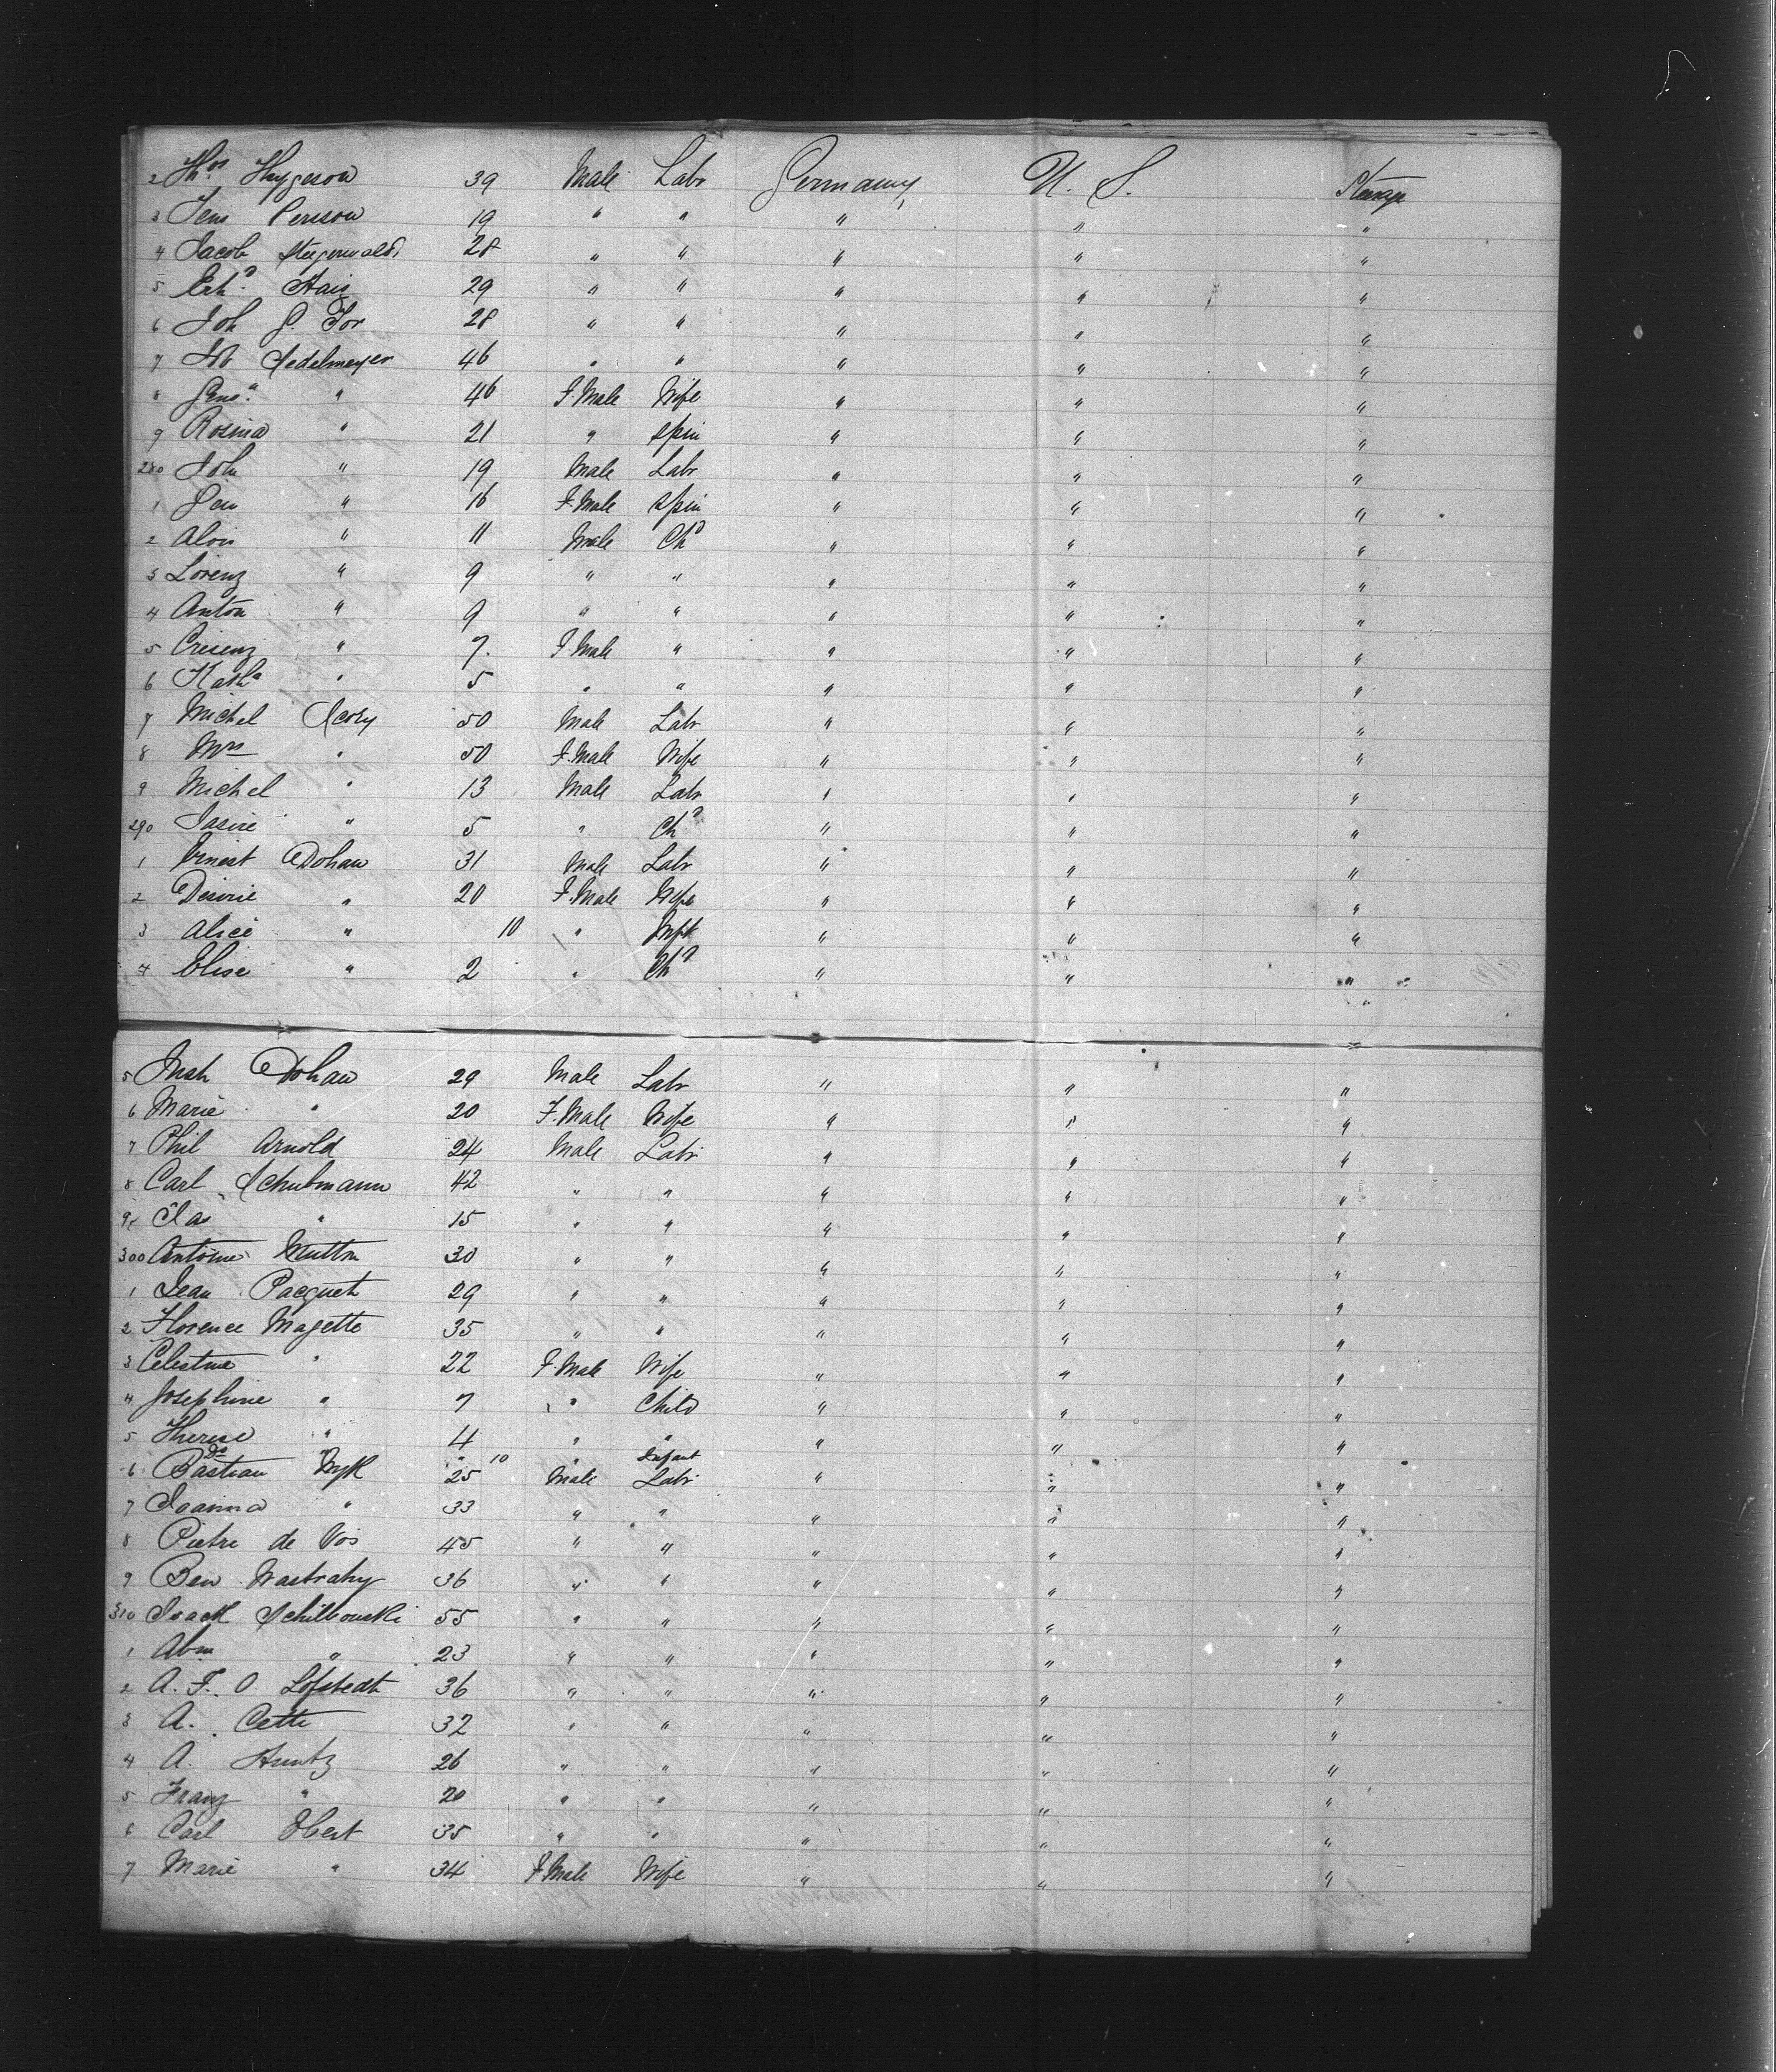 2 Thos Thygeson 39 Male Labr Germany U. S. Steerage
3 Jens Persson 19 " " " " "
4 Jacob Steegerwald 28 " " " " "
5 Erhd Hais 29 " " " " "
6 Joh G. Tor 28 " " " " "
7 Jos Sedelmeyer 46 " " " " "
8 Gena " 46 F.Male Wife " " "
9 Rosina " 21 " Spin " " "
280 Joh " 19 Male Labr " " "
1 Gen " 16 F.Male Spin " " "
2 Alois " 11 Male Chd " " "
3 Lorenz " 9 " " " " "
4 Anton " 9 " " " " "
5 Cresenz " 7 F.Male " " " "
6 Katha " 5 " " " " "
7 Michel Scory 50 Male Labr " " "
8 Mrs " 50 F.Male Wife " " "
9 Michel " 13 Male Labr " " "
290 " 5 " Chd " " "
1 Ernest Dohaw 31 Male Labr " " "
2 Desirie " 20 F.Male Wife " " "
3 Alice " 10 " Inft " " "
4 Elise " 2 " Chd " " "
5 Dohaw 29 Male Labr " " "
6 Marie " 20 F.Male Wife " " "
7 Phil Arnold 24 Male Labr " " "
8 Carl Schubmann 42 " " " " "
9 " 15 " " " " "
300 Antoine Mutton 30 " " " " "
1 Jean Pacquet 29 " " " " "
2 Florence Magette 35 " " " " "
3 Celestine " 22 F.Male Wife " " "
4 Josephine " 7 " Child " " "
5 Therese " 4 " " " " "
do " " 10 " Infant
6 Bastian Wyk 25 Male Labr " " "
7 Joanna " 33 " " " " "
8 Pietre de Vos 45 " " " " "
9 Ben Wastrahy 36 " " " " "
310 Isack Schilkouski 55 " " " " "
1 Abm " 23 " " " " "
2 A. F. O. Lofstedt 36 " " " " "
3 A. Cette 32 " " " " "
4 A. Huntz 26 " " " " "
5 Franz " 20 " " " " "
6 Carl Ebert 35 " " " " "
7 Marie " 34 F.Male Wife " " "